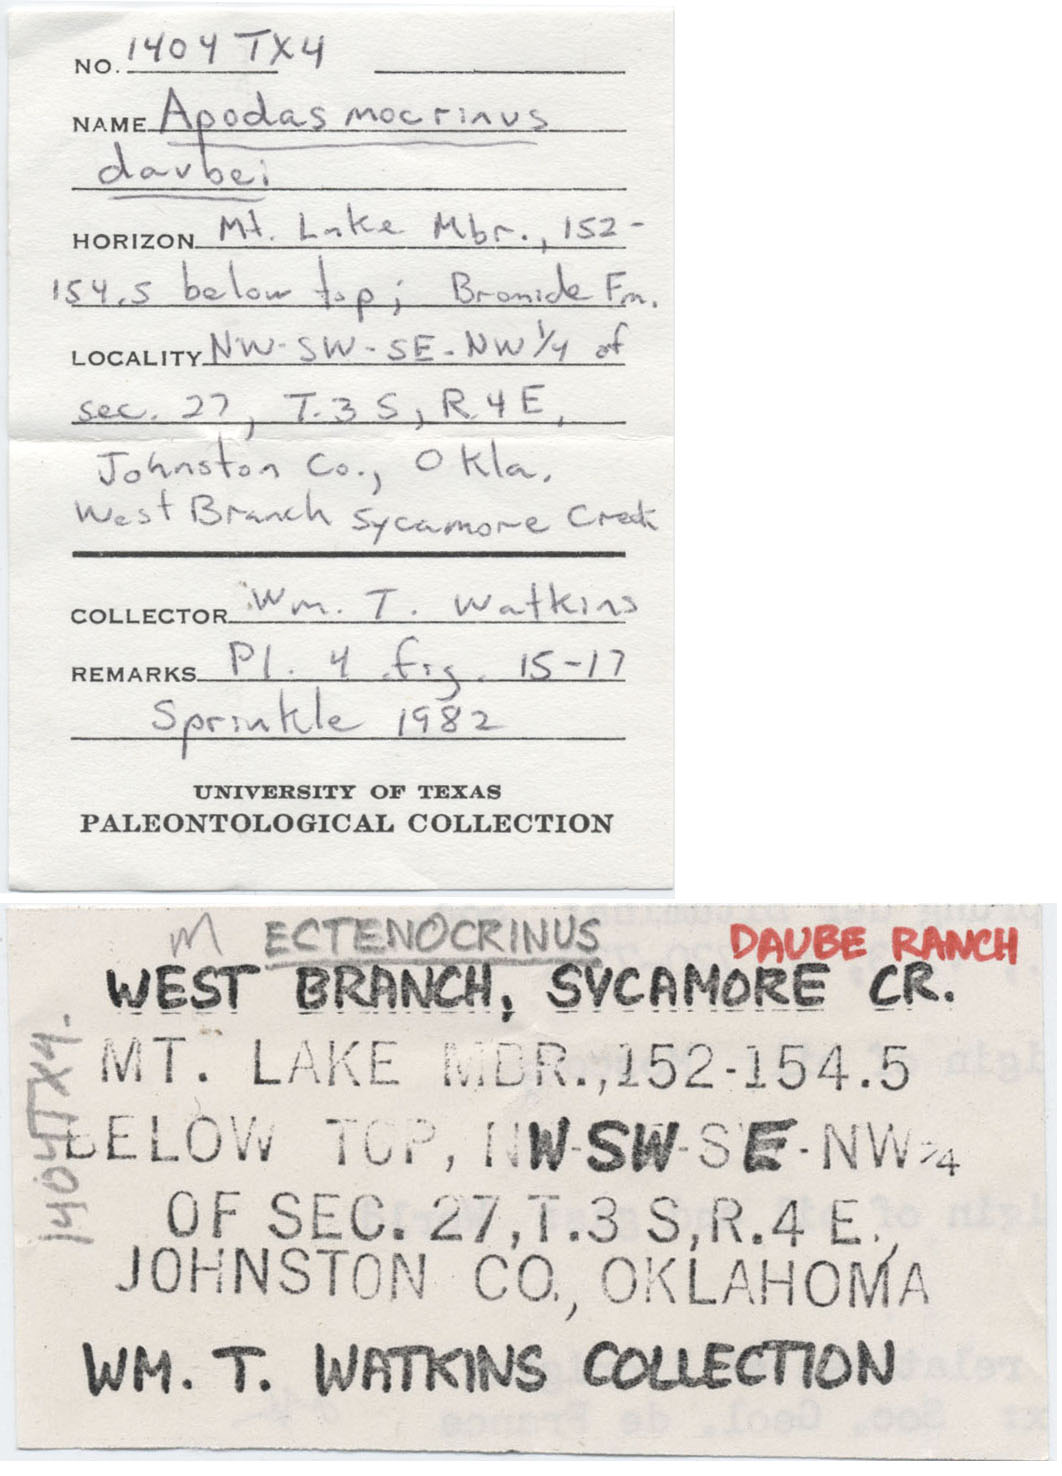 NO. 1404 TX4
NAME Apodasmocrinus
daubei
HORIZON Mt. Lake Mbr., 152-
154.5 below top; Bromide Fm.
LOCALITY NW-SW-SE-NW 1/4 of
sec. 27, T.3 S, R.4 E,
Johnston Co., Okla.
West Branch Sycamore Creek
COLLECTOR Wm. T. Watkins
REMARKS Pl. 4 fig. 15-17
Sprinkle 1982
UNIVERSITY OF TEXAS
PALEONTOLOGICAL COLLECTION
M ECTENOCRINUS
DAUBE RANCH
WEST BRANCH, SYCAMORE CR.
MT. LAKE MBR., 152-154.5
BELOW TOP, NW-SW-SE-NW 1/4
OF SEC. 27, T.3 S, R.4 E.,
JOHNSTON CO., OKLAHOMA
WM. T. WATKINS COLLECTION
1404TX4.